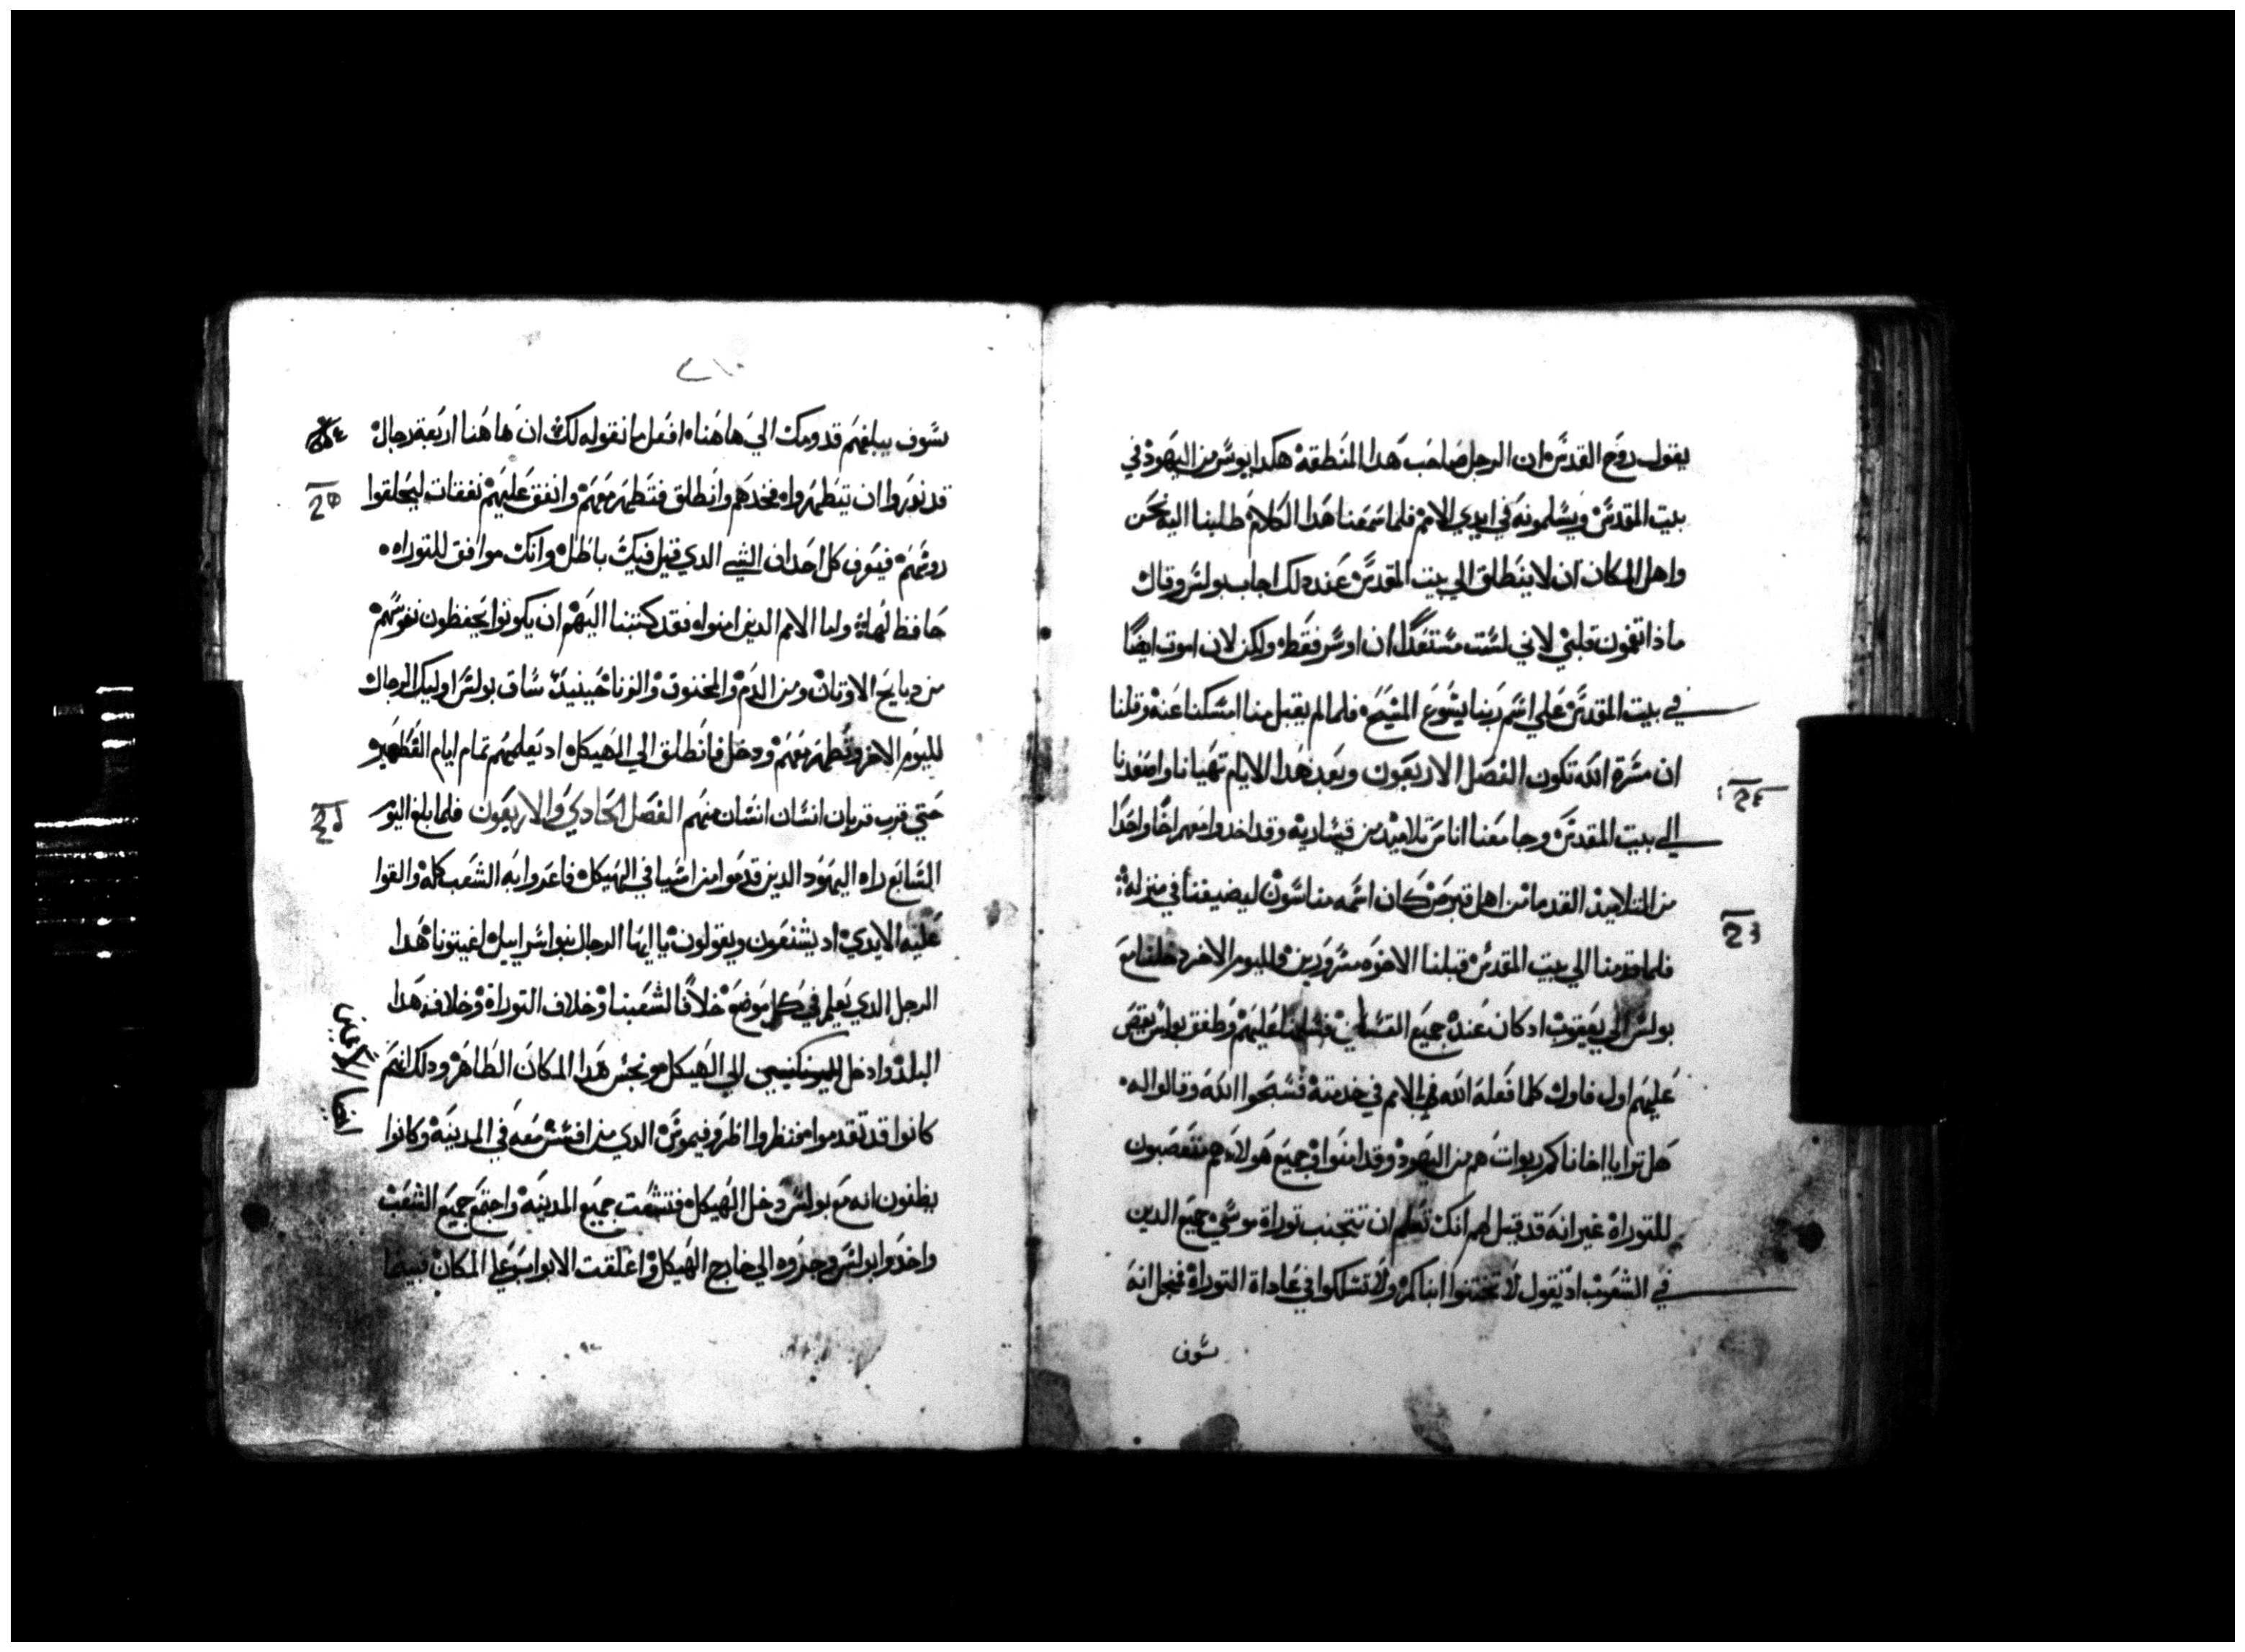 يقول روح القدس ان الرجل صاحب هدا المنطقة هكدا يوسر من اليهود في
بيت المقدس ويسلمونه في ايدي الامم فلما سمعنا هدا الكلام طلبنا اليه نحن
واهل المكان ان لا ينطلق الي بيت المقدس عند دلك اجاب بولس وقال
ماذا تغمون قلبي لاني لست مستعدا ان اوسر فقط ولكن لان اموت ايضا
في بيت المقدس علي اسم ربنا يشوع المسيح فلما لم يقبل منا امسكنا عنه وقلنا
ان مسرة الله تكون الفصل الاربعون وبعد هدا الايام تهيانا واصعدنا
الي بيت المقدس وجا معنا اناس تلاميد من قيساريه وقد اخدوا معهم اخا واحدا
من التلاميد القدما من اهل قبرص كان اسمه مناسون ليضيفنا في منزله
فلما قدمنا الي بيت المقدس قبلنا الاخوه مسرورين ولليوم الاخر دخلنا مع
بولس الي يعقوب اد كان عنده جميع القسان فسلمنا عليهم وطفق بولس يقص
عليهم اول فاول كلما فعله الله في الامم في خدمته فسبحوا الله وقالوا له
هل ترا يا اخانا كم ربوات هم من اليهود وقد امنوا وجميع هولاء هم متعصبون
للتوراة غير انه قد قيل لهم انك تعلم ان تتجنب توراة موسي جميع الدين
في الشعوب اد تقول لا تختنوا ابناكم ولا تسلكوا في عاداة التوراة فنجل انه
سوف
سوف يبلغهم قدومك الي هاهنا افعل ما نقوله لك ان هاهنا اربعة رجال
قد ندروا ان يتطهروا فخدهم وانطلق فتطهر معهم وانفق عليهم نفقات ليحلقوا
روسهم فيعرف كل احد ان الشي الدي قيل فيك باطل وانك موافق للتوراه
حافظ لها واما الامم الدين امنوا فقد كتبنا اليهم ان يكونوا يحفظون نفوسهم
من دبايح الاوتان ومن الدم والمخنوق والزنا حينيد ساق بولس اوليك الرجال
لليوم الاخر وتطهر معهم ودخل فانطلق الي الهيكل اد يعلمهم تمام ايام التطهير
حتي قرب قربان انسان انسان منهم الفصل الحادي والاربعون فلما بلغ اليوم
السابع راه اليهود الدين قدموا من اسيا في الهيكل فاغروا به الشعب كله والقوا
عليه الايدي اد يشنعون ويقولون يا ايها الرجال بنو اسراييل اغيتونا هدا
الرجل الدي يعلم في كل موضع خلافا لشعبنا وخلاف التوراة وخلاف هدا
البلد وادخل الي الهيكل ونجس هدا المكان الطاهر ودلك انهم
كانوا قد تقدموا فنظروا اطروفيموس الدي من افسس معه في المدينة وكانوا
يظنون انه مع بولس دخل الهيكل فتشعت جميع المدينة واجتمع جميع الشعب
واخدوا بولس وجروه الي خارج الهيكل واغلقت الابواب